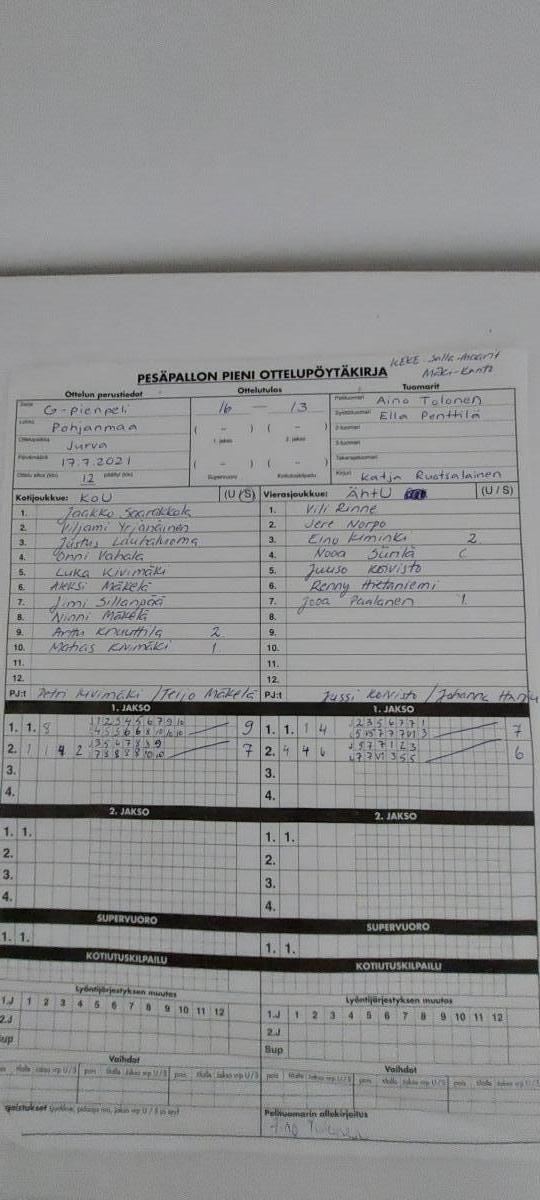 KEKE Salla-Maarit
PESÄPALLON PIENI OTTELUPÖYTÄKIRJA
Ottelun perustiedot Ottelutulos Tuomarit
Sarja G-pienpeli 16 — 13 Pelituomari Aino Tolonen
Lohko Pohjanmaa ( - ) ( - ) Syöttötuomari Ella Penttilä
1. jakso 2. jakso 2-tuomari
Ottelupaikka Jurva 3-tuomari
Päivämäärä 17.7.2021 ( - ) ( - ) Takarajatuomari
Ottelu alkoi (klo) 12 päättyi (klo) Supervuoro Kotiutuskilpailu Kirjuri Katja Ruotsalainen
Kotijoukkue: KoU (U/S) Vierasjoukkue: ÄhtU (U/S)
1. Jaakko Saarakkala 1. Vili Rinne
2. Viljami Yrjänäinen 2. Jere Norpo
3. Justus Lauhaluoma 3. Eino Kiminki 2.
4. Onni Vahala 4. Nooa Sünlä C
5. Luka Kivimäki 5. Juuso Koivisto
6. Aleksi Mäkelä 6. Renny Hietaniemi
7. Jimi Sillanpää 7. Jooa Paalanen 1.
8. Ninni Mäkelä 8.
9. Arttu Knuuttila 2. 9.
10. Matias Kivimäki 1. 10.
11. 11.
12. 12.
PJ:t Petri Kivimäki / Teijo Mäkelä PJ:t Jussi Koivisto / Johanna
1. JAKSO 1. JAKSO
1. 1. 8 9 1. 1. 1 4 7
2. 1 1 4 2 7 2. 4 4 6 6
3. 3.
4. 4.
2. JAKSO 2. JAKSO
1. 1. 1. 1.
2. 2.
3. 3.
4. 4.
SUPERVUORO SUPERVUORO
1. 1. 1. 1.
KOTIUTUSKILPAILU KOTIUTUSKILPAILU
Lyöntijärjestyksen muutos Lyöntijärjestyksen muutos
1.J 1 2 3 4 5 6 7 8 9 10 11 12 1.J 1 2 3 4 5 6 7 8 9 10 11 12
2.J 2.J
Sup Sup
Vaihdot Vaihdot
Pelituomarin allekirjoitus